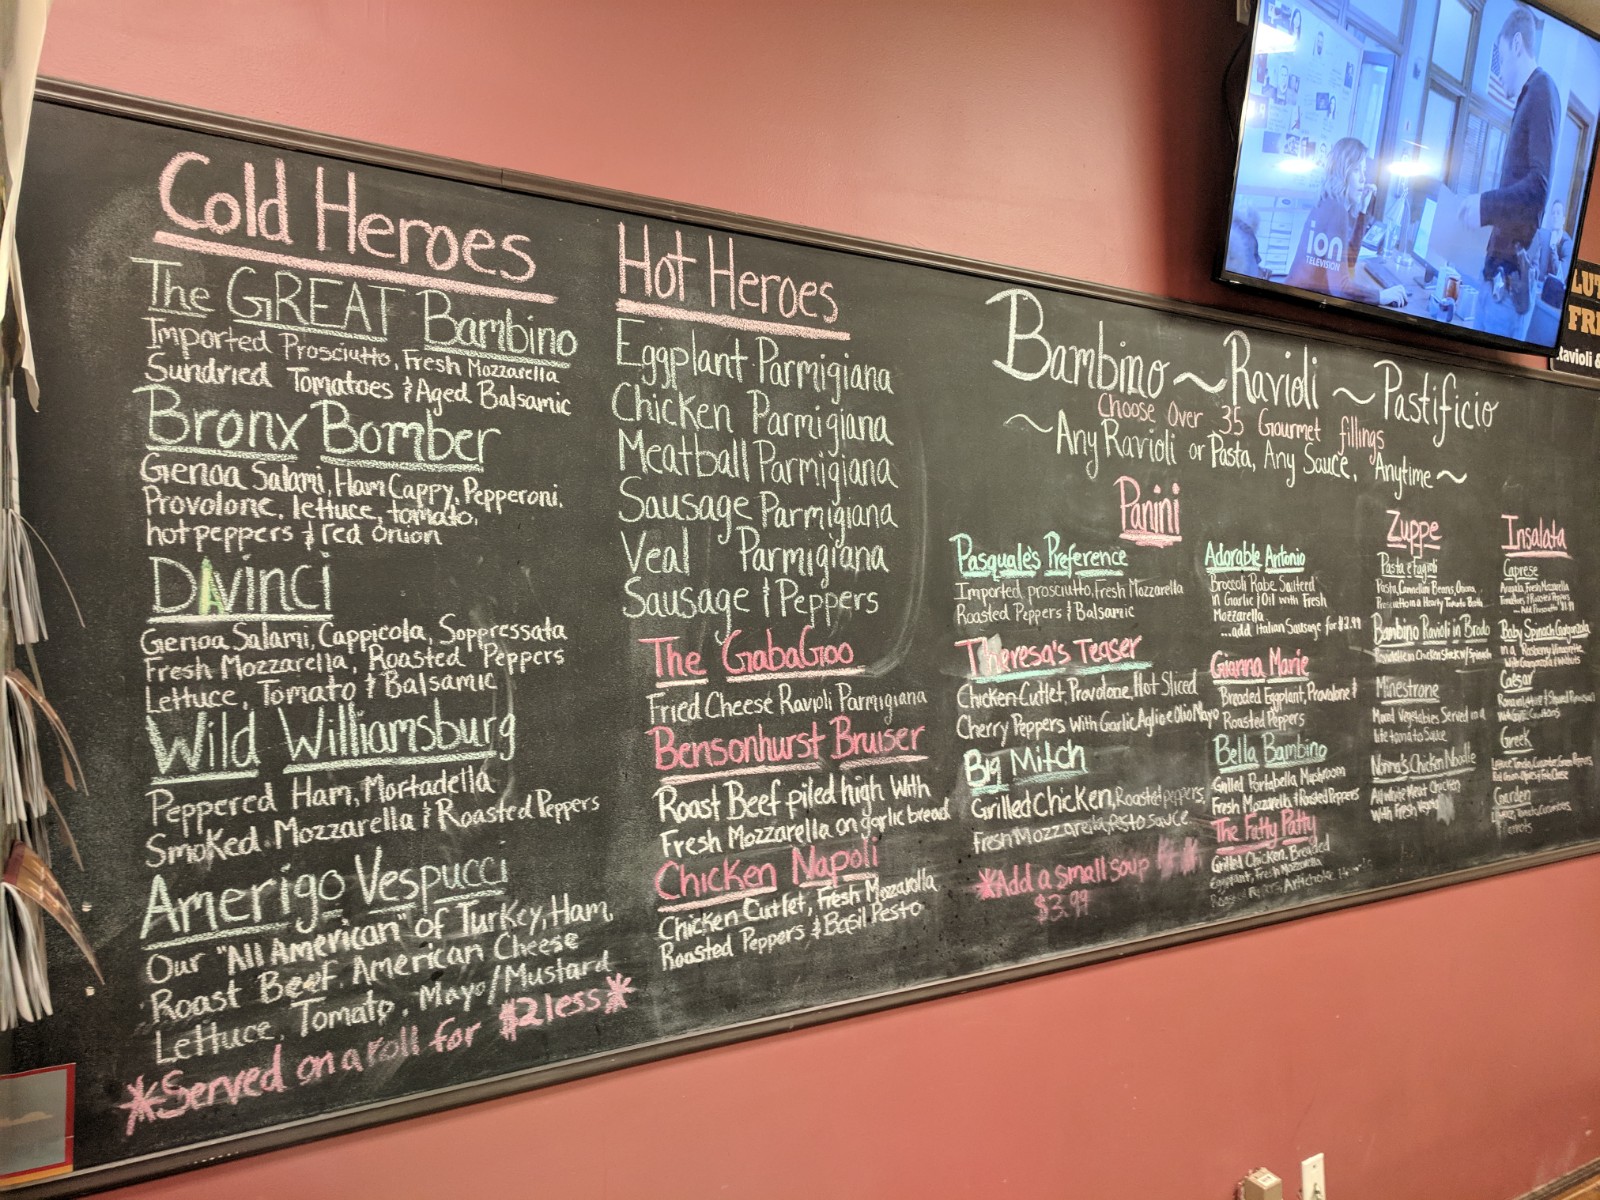 Cold Heroes
The GREAT Bambino
Imported Prosciutto, Fresh Mozzarella
Sundried Tomatoes & Aged Balsamic
Bronx Bomber
Genoa Salami, Ham Cappy, Pepperoni,
Provolone, lettuce, tomato,
hot peppers & red onion
DAvinci
Genoa Salami, Cappicola, Soppressata
Fresh Mozzarella, Roasted Peppers
Lettuce, Tomato & Balsamic
Wild Williamsburg
Peppered Ham, Mortadella
Smoked Mozzarella & Roasted Peppers
Amerigo Vespucci
Our "All American" of Turkey, Ham,
Roast Beef, American Cheese
Lettuce, Tomato, Mayo/Mustard
*Served on a roll for $2 less*
Hot Heroes
Eggplant Parmigiana
Chicken Parmigiana
Meatball Parmigiana
Sausage Parmigiana
Veal Parmigiana
Sausage & Peppers
The GabaGoo
Fried Cheese Ravioli Parmigiana
Bensonhurst Bruiser
Roast Beef piled high with
Fresh Mozzarella on garlic bread
Chicken Napoli
Chicken Cutlet, Fresh Mozzarella
Roasted Peppers & Basil Pesto
Bambino ~ Ravioli ~ Pastificio
Choose Over 35 Gourmet fillings
~Any Ravioli or Pasta, Any Sauce, Anytime~
Panini
Pasquale's Preference
Imported prosciutto, Fresh Mozzarella
Roasted Peppers & Balsamic
Theresa's Teaser
Chicken Cutlet, Provolone, Hot Sliced
Cherry Peppers with Garlic Aglio e Olio Mayo
Big Mitch
Grilled Chicken, Roasted peppers,
Fresh Mozzarella, Pesto sauce
*Add a small soup
$3.99
Adorable Antonio
Broccoli Rabe Sauteed
in Garlic & Oil with Fresh
Mozzarella
...add Italian Sausage for $3.99
Gianna Marie
Breaded Eggplant, Provolone &
Roasted Peppers
Bella Bambino
Grilled Portabella Mushroom
Fresh Mozzarella & Roasted Peppers
The Fatty Patty
Grilled Chicken, Breaded
Eggplant, Fresh Mozzarella
Artichoke
Zuppe
Pasta e Fagioli
Pasta, Cannellini Beans, Onions,
Prosciutto in a Hearty Tomato Broth
Bambino Ravioli in Brodo
in Chicken Stock w/ Spinach
Minestrone
Mixed Vegetables Served in a
lite tomato Sauce
Nonna's Chicken Noodle
All white Meat Chicken
With Fresh
Insalata
Caprese
Arugula, Fresh Mozzarella
Tomatoes & Roasted Peppers
Baby Spinach Gorgonzola
in a Raspberry Vinaigrette
with Gorgonzola & Walnuts
Caesar
Greek
Garden
ion
TELEVISION
LUT
FRE
Ravioli &